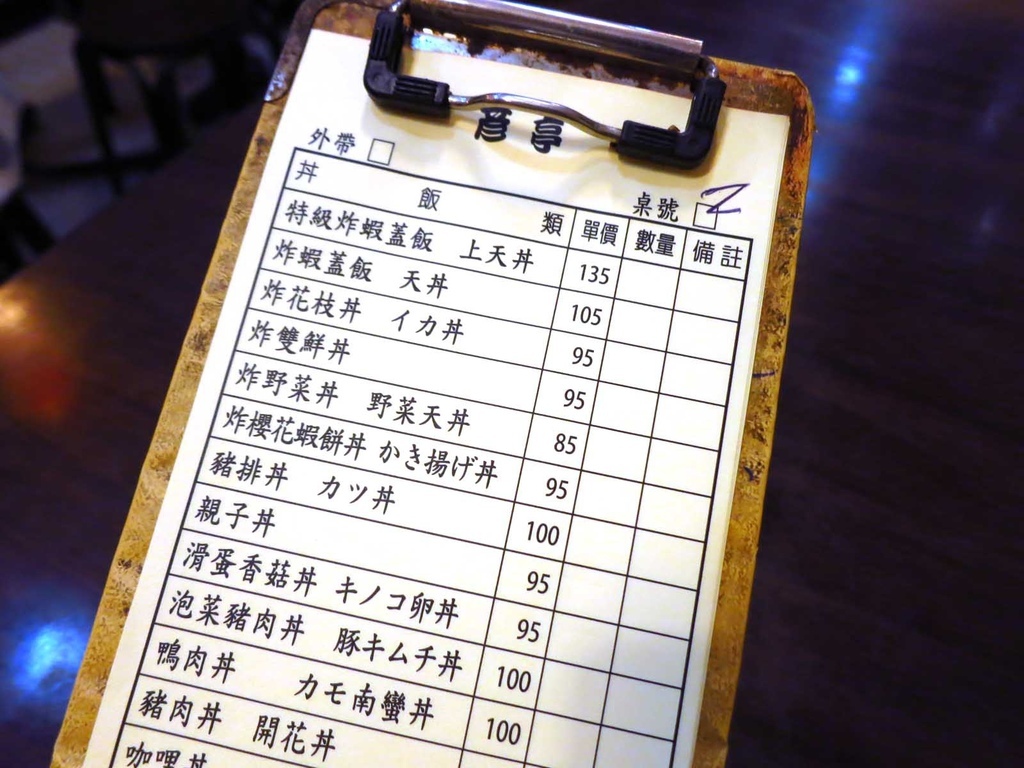 彦亭
外帶 □
桌號 □ 2
丼 飯 類 單價 數量 備註
特級炸蝦蓋飯 上天丼 135
炸蝦蓋飯 天丼 105
炸花枝丼 イカ丼 95
炸雙鮮丼 95
炸野菜丼 野菜天丼 85
炸櫻花蝦餅丼 かき揚げ丼 95
豬排丼 カツ丼 100
親子丼 95
滑蛋香菇丼 キノコ卵丼 95
泡菜豬肉丼 豚キムチ丼 100
鴨肉丼 カモ南蠻丼 100
豬肉丼 開花丼
咖哩丼